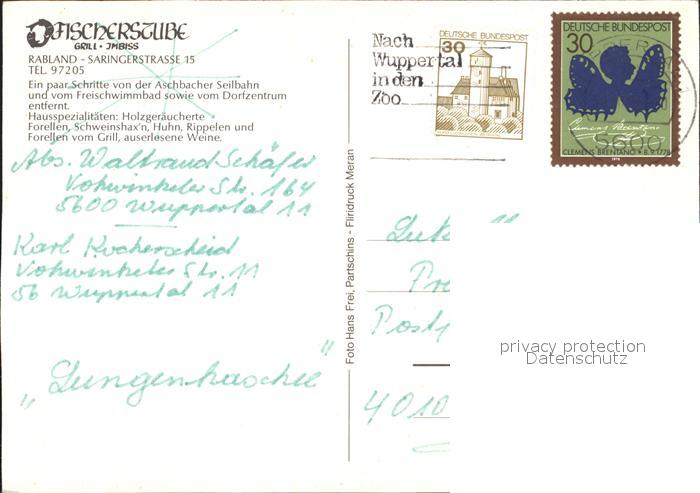 FISCHERSTUBE
GRILL · IMBISS
RABLAND - SARINGERSTRASSE 15
TEL. 97205
Ein paar Schritte von der Aschbacher Seilbahn
und vom Freischwimmbad sowie vom Dorfzentrum
entfernt.
Hausspezialitäten: Holzgeräucherte
Forellen, Schweinshax'n, Huhn, Rippelen und
Forellen vom Grill, auserlesene Weine.
Abs. Waltraud Schäfer
Vohwinkeler Str. 164
5600 Wuppertal 11
Karl Kocherscheid
Vohwinkeler Str. 11
56 Wuppertal 11
„Lungenhaschee"
Foto Hans Frei, Partschins - Fliridruck Meran
Nach
Wuppertal
in den
Zoo
DEUTSCHE BUNDESPOST
30
DEUTSCHE BUNDESPOST
30
Clemens Brentano
CLEMENS BRENTANO · 8.9.1778
1978
5600
Post
4010
privacy protection
Datenschutz